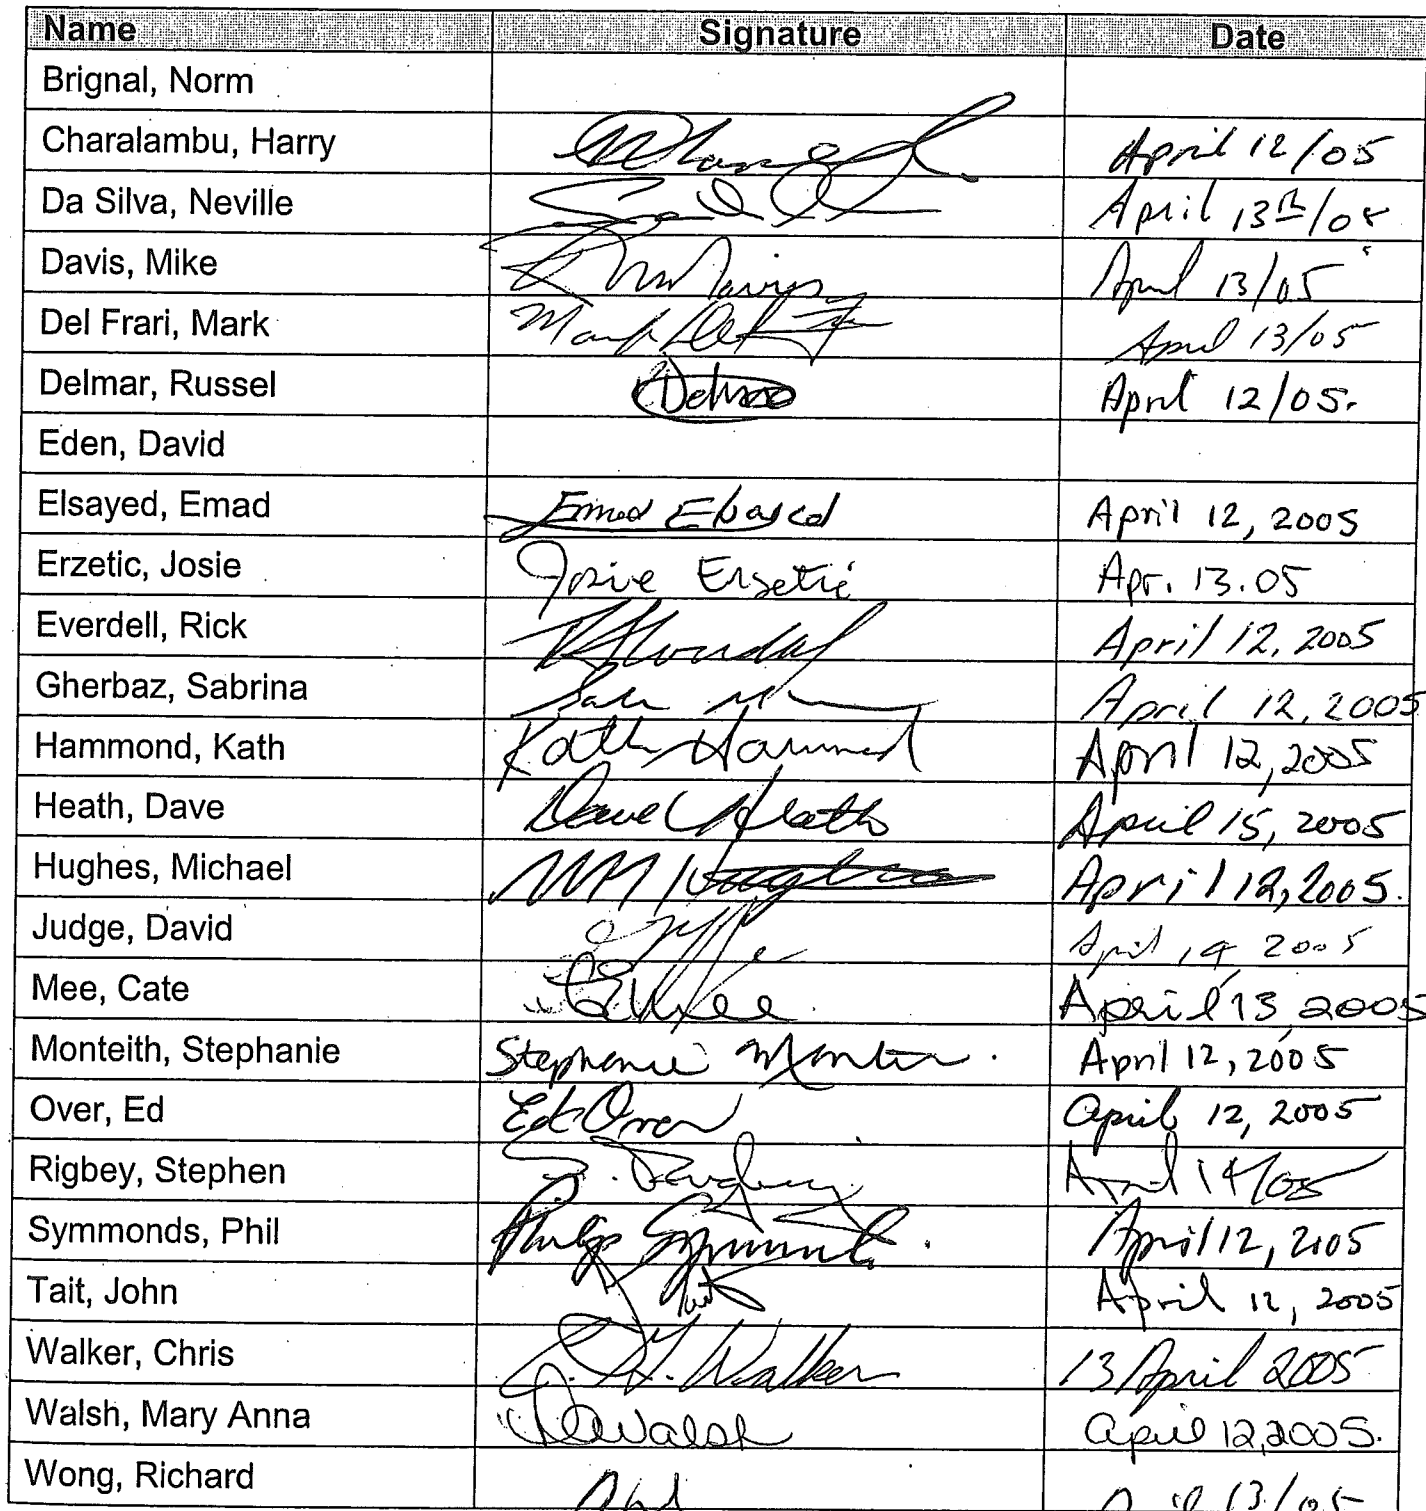 Name Signature Date
Brignal, Norm
Charalambu, Harry April 12/05
Da Silva, Neville April 13th/05
Davis, Mike April 13/05
Del Frari, Mark Mark Del F April 13/05
Delmar, Russel April 12/05.
Eden, David
Elsayed, Emad Emad Elsayed April 12, 2005
Erzetic, Josie Josie Erzetic Apr. 13.05
Everdell, Rick April 12, 2005
Gherbaz, Sabrina April 12, 2005
Hammond, Kath Kath Hammond April 12, 2005
Heath, Dave Dave Heath April 15, 2005
Hughes, Michael April 12, 2005.
Judge, David April 14, 2005
Mee, Cate April 13, 2005
Monteith, Stephanie Stephanie Monteith. April 12, 2005
Over, Ed Ed Over April 12, 2005
Rigbey, Stephen S. Rigbey April 14/05
Symmonds, Phil Philip Symmonds. April 12, 2005
Tait, John Tait April 12, 2005
Walker, Chris C. H. Walker 13 April 2005
Walsh, Mary Anna Walsh April 12, 2005.
Wong, Richard April 13/05